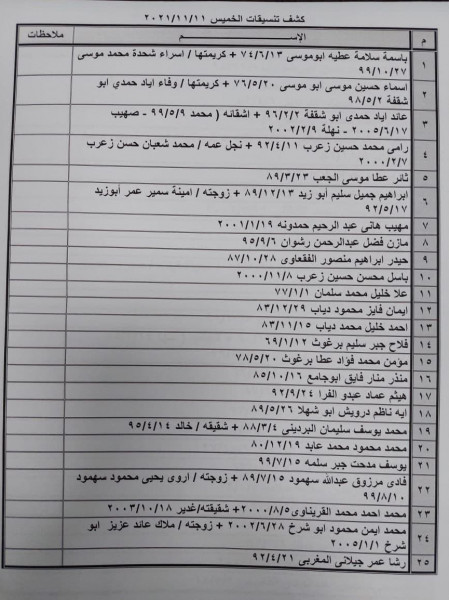 كشف تنسيقات الخميس ٢٠٢١/١١/١١
م الإســـم ملاحظات
١ باسمة سلامة عطيه ابوموسى ٧٤/٦/١٣ + كريمتها / اسراء شحدة محمد موسى
٩٩/١٠/٢٧
٢ اسماء حسين موسى ابو موسى ٧٦/٥/٢٠ + كريمتها / وفاء اياد حمدي ابو
شقفة ٩٨/٥/٢
٣ عائد اياد حمدى ابو شقفة ٩٦/٢/٢ + اشقائه ( محمد ٩٩/٥/٩ - صهيب
٢٠٠٥/٦/١٧ - نهلة ٢٠٠٢/٢/٩
٤ رامى محمد حسين زعرب ٩٢/٤/١١ + نجل عمه / محمد شعبان حسن زعرب
٢٠٠٠/٢/٧
٥ ثائر عطا موسى الجعب ٨٩/٣/٢٣
٦ ابراهيم جميل سليم أبو زيد ٨٩/١٢/١٣ + زوجته / امينة سمير عمر أبوزيد
٩٢/٥/١٧
٧ مهيب هانى عبد الرحيم حمدونه ٢٠٠١/١/١٩
٨ مازن فضل عبدالرحمن رشوان ٩٥/٩/٦
٩ حيدر ابراهيم منصور الفقعاوى ٨٧/١٠/٢٨
١٠ باسل محسن حسين زعرب ٢٠٠٠/١١/٨
١١ علا خليل محمد سلمان ٧٧/١/١
١٢ ايمان فايز محمود دياب ٨٣/١٢/٢٩
١٣ احمد خليل محمد دياب ٨٣/١١/١٥
١٤ فلاح جبر سليم برغوث ٦٩/١/١٢
١٥ مؤمن محمد فؤاد عطا برغوث ٧٨/٥/٢٠
١٦ منذر منار فايق ابوجامع ٨٥/١٠/١٦
١٧ هيثم عماد عبدو الفرا ٩٢/٩/٢٤
١٨ ايه ناظم درويش أبو شهلا ٨٩/٥/٢٦
١٩ محمد يوسف سليمان البرديني ٨٨/٣/٤ + شقيقه / خالد ٩٥/٤/١٤
٢٠ محمد محمود محمد عابد ٨٠/١٢/١٩
٢١ يوسف مدحت جبر سلمه ٩٩/٧/١٥
٢٢ فادى مرزوق عبدالله سهمود ٨٩/٧/١٥ + زوجته / اروى يحيى محمود سهمود
٩٩/٨/١٠
٢٣ محمد احمد محمد القريناوى ٢٠٠٠/٨/٥+ شقيقته/غدير ٢٠٠٣/١٠/١٨
٢٤ محمد ايمن محمود ابو شرخ ٢٠٠٢/٦/٢٨ + زوجته / ملاك عائد عزيز ابو
شرخ ٢٠٠٥/١/١
٢٥ رشا عمر جيلانى المغربى ٩٢/٤/٢١